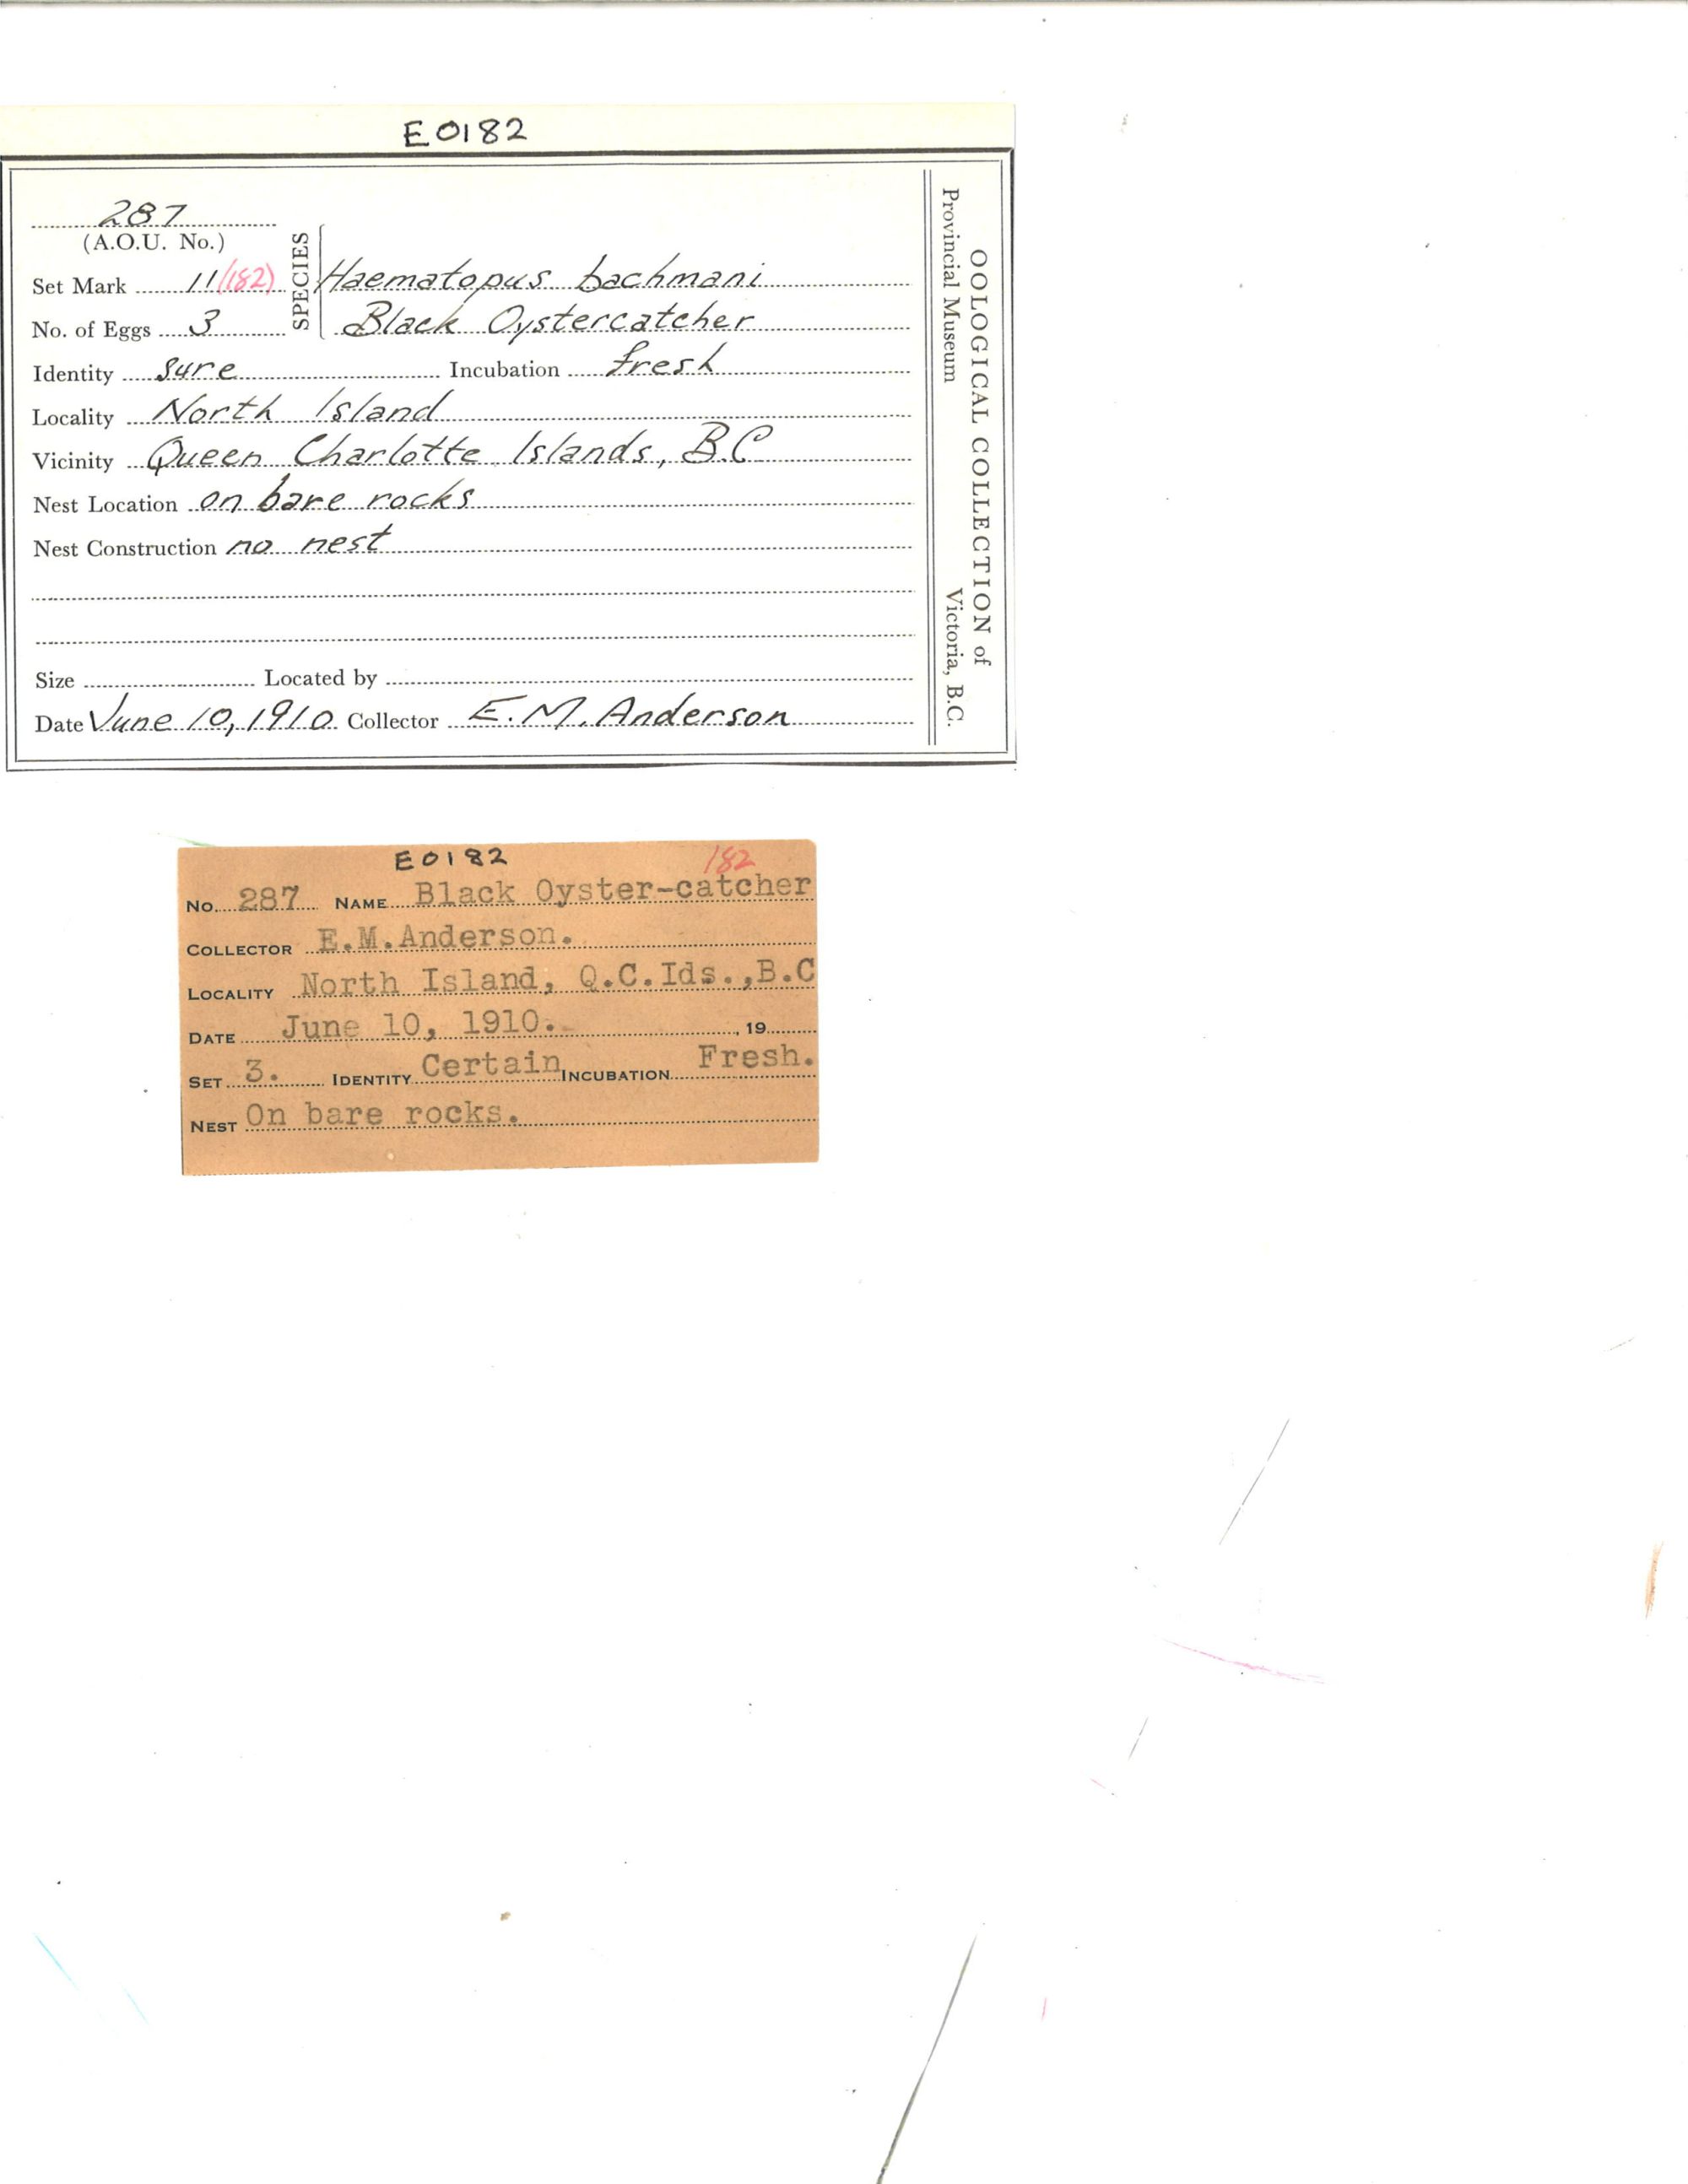 E0182
287
(A.O.U. No.)
SPECIES
Set Mark 11(182) Haematopus bachmani
No. of Eggs 3 Black Oystercatcher
Identity sure Incubation fresh
Locality North Island
Vicinity Queen Charlotte Islands, B.C
Nest Location on bare rocks
Nest Construction no nest
Size Located by
Date June 10, 1910 Collector E.M. Anderson
OOLOGICAL COLLECTION of
Provincial Museum Victoria, B.C.
E0182 182
No. 287 NAME Black Oyster-catcher
COLLECTOR E.M.Anderson.
LOCALITY North Island, Q.C.Ids.,B.C
DATE June 10, 1910. , 19
SET 3. IDENTITY Certain INCUBATION Fresh.
NEST On bare rocks.